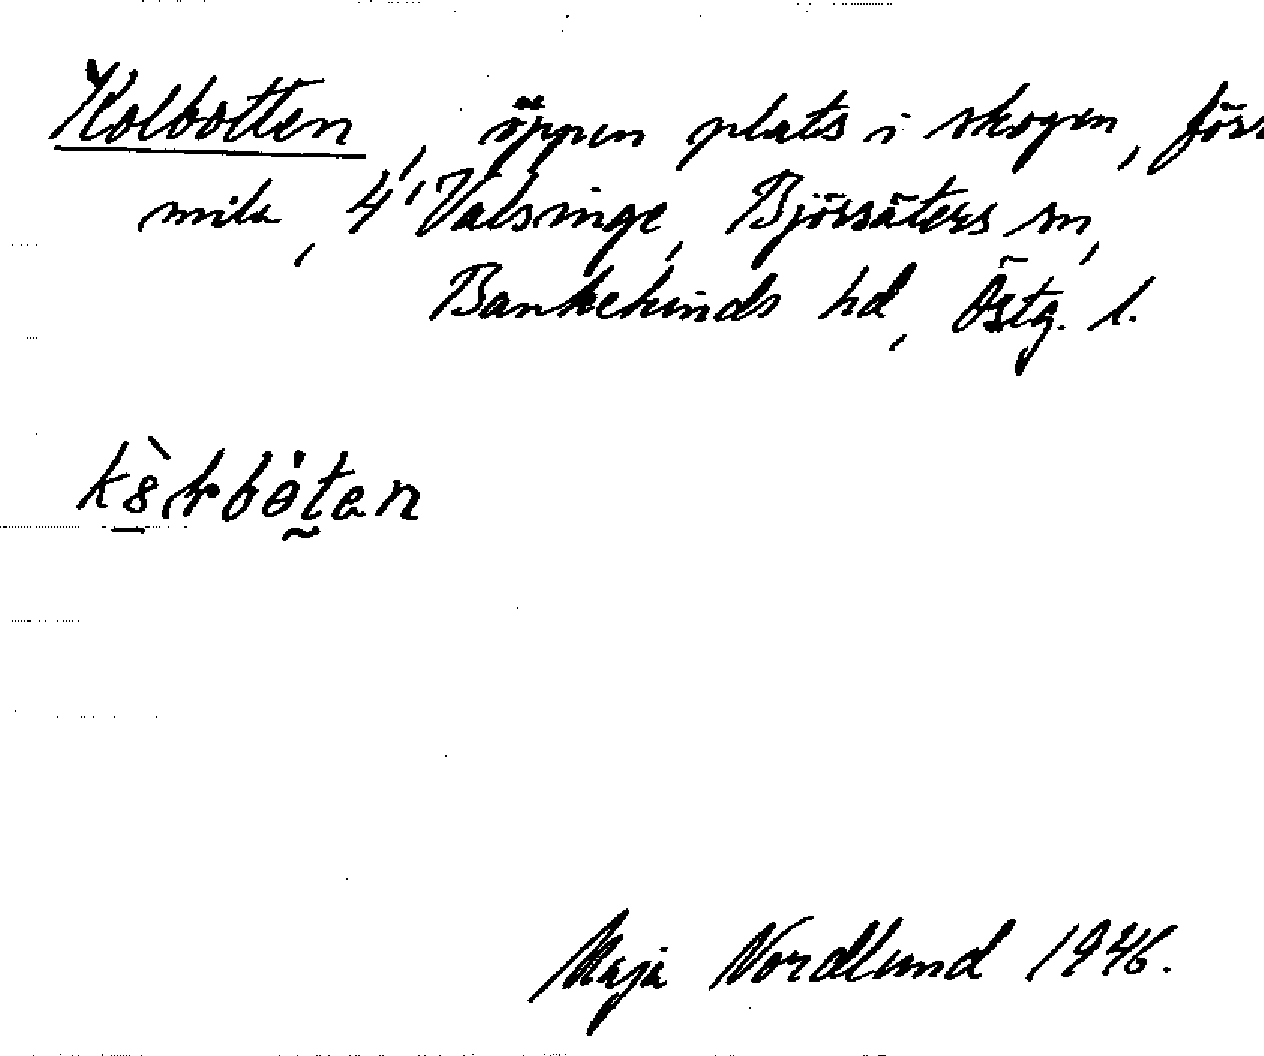 Kolbotten, öppen plats i skogen, förr
mila, 4' Valsinge, Björsäters sn,
Bankekinds hd, Östg. l.
Maja Nordlund 1946.